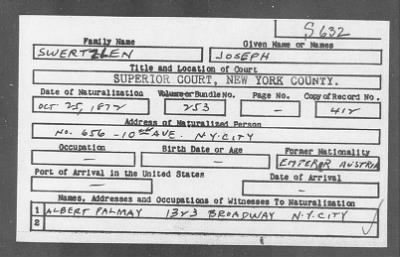 S632
Family Name Given Name or Names
SWERTZLEN JOSEPH
Title and Location of Court
SUPERIOR COURT, NEW YORK COUNTY.
Date of Naturalization Volume or Bundle No. Page No. Copy of Record No.
OCT. 25, 1872 253 — 412
Address of Naturalized Person
NO. 656 - 10th AVE. N.Y. CITY
Occupation Birth Date or Age Former Nationality
— — EMPEROR AUSTRIA
Port of Arrival in the United States Date of Arrival
— —
Names, Addresses and Occupations of Witnesses To Naturalization
1 ALBERT PALMAY 1323 BROADWAY N.Y. CITY
2